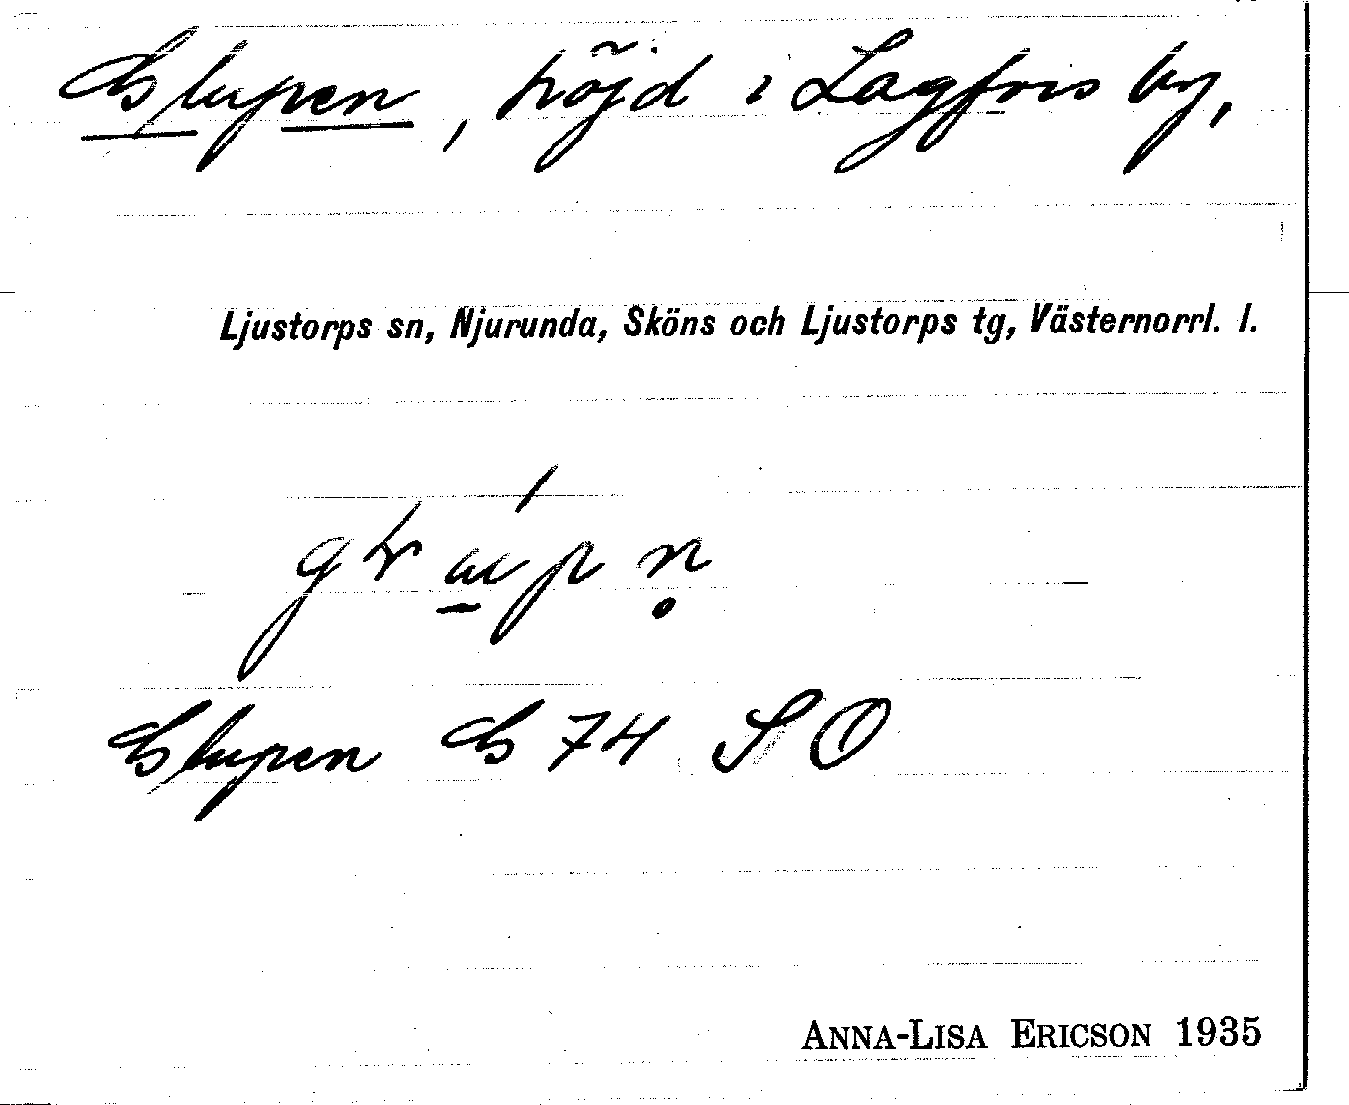 Glupen, höjd i Lagfors by,
Ljustorps sn, Njurunda, Sköns och Ljustorps tg, Västernorrl. l.
Glupen G 74 SO
ANNA-LISA ERICSON 1935